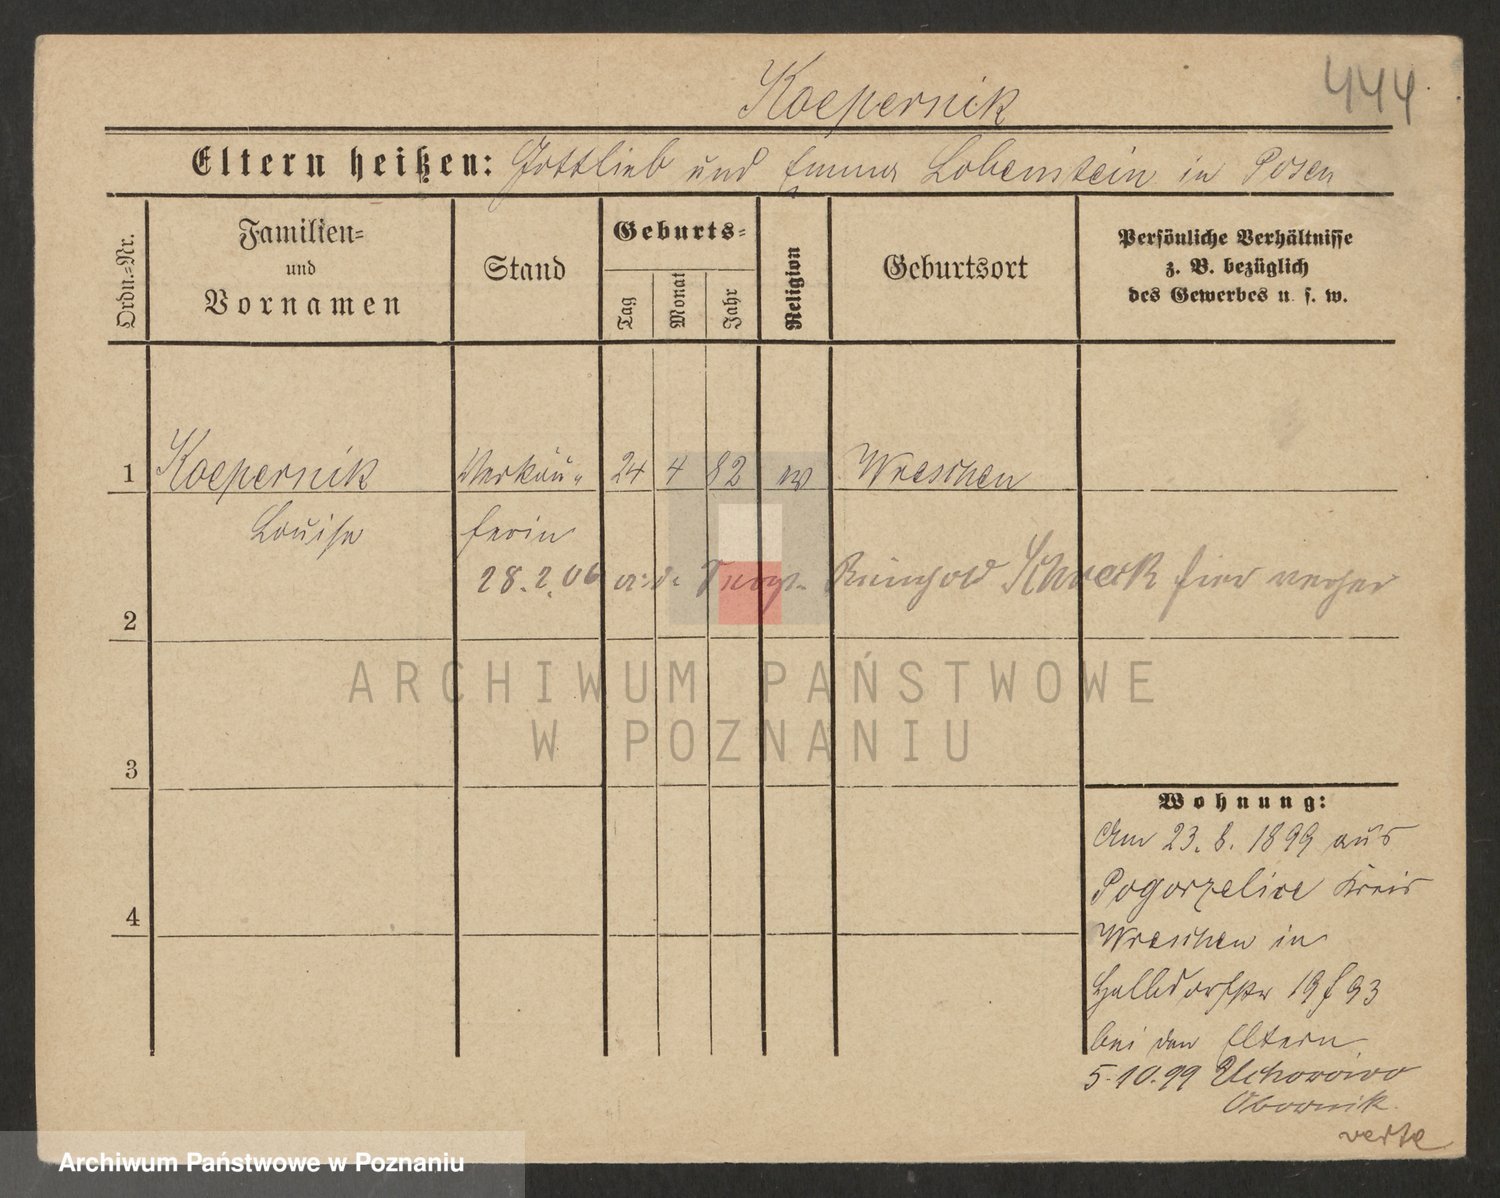 444
Koepernik
Eltern heißen: Gottlieb und Emma Lobenstein in Posen
Ordn.=Nr.
Familien=
und
Vornamen
Stand
Geburts=
Tag
Monat
Jahr
Religion
Geburtsort
Persönliche Verhältnisse
z. B. bezüglich
des Gewerbes u. s. w.
1 Koepernik Verkäu- 24 4 82 ev Wreschen
Louise ferin
2 28.2.06 a. d. Reinhold hier
3
4
Wohnung:
Am 23. 8. 1899 aus
Pogorzelice Kreis
Wreschen in
Halbdorfstr 19 93
bei den Eltern
5.10.99 Uchorowo
Obornik
verte
ARCHIWUM PAŃSTWOWE
W POZNANIU
Archiwum Państwowe w Poznaniu